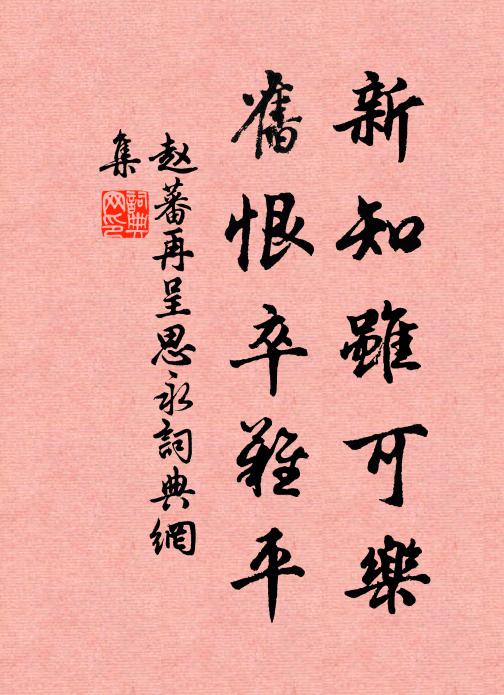 新知雖可樂
舊恨卒難平
赵蕃再呈思永詞典網
集
詞典
网印